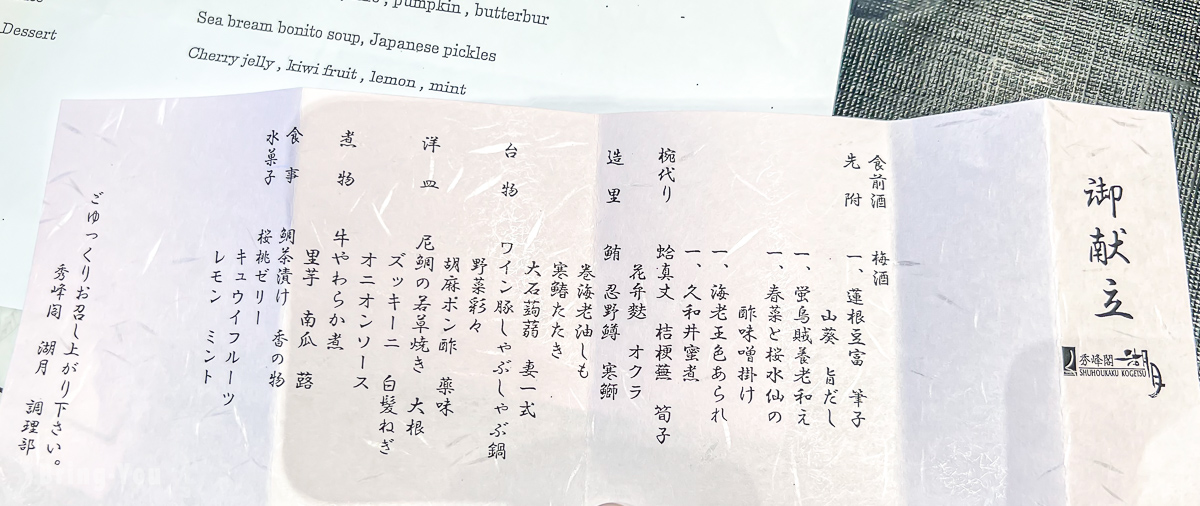 , pumpkin , butterbur
Sea bream bonito soup, Japanese pickles
Dessert
Cherry jelly , kiwi fruit , lemon , mint
御献立
秀峰閣 湖月
SHUHOUKAKU KOGETSU
食前酒 梅酒
先附 一、蓮根豆富 筆子
山葵 旨だし
一、蛍烏賊養老和え
一、春菜と桜水仙の
酢味噌掛け
一、海老玉色あられ
一、久和井蜜煮
椀代り 蛤真丈 桔梗蕪 筍子
花弁麩 オクラ
造里 鮪 忍野鱒 寒鰤
巻海老油しも
寒鰆たたき
大石蒟蒻 妻一式
台物 ワイン豚しゃぶしゃぶ鍋
野菜彩々
胡麻ポン酢 薬味
洋皿 尼鯛の若草焼き 大根
ズッキーニ 白髪ねぎ
オニオンソース
煮物 牛やわらか煮
里芋 南瓜 蕗
食事 鯛茶漬け 香の物
水菓子 桜桃ゼリー
キュウイフルーツ
レモン ミント
ごゆっくりお召し上がり下さい。
秀峰閣 湖月 調理部